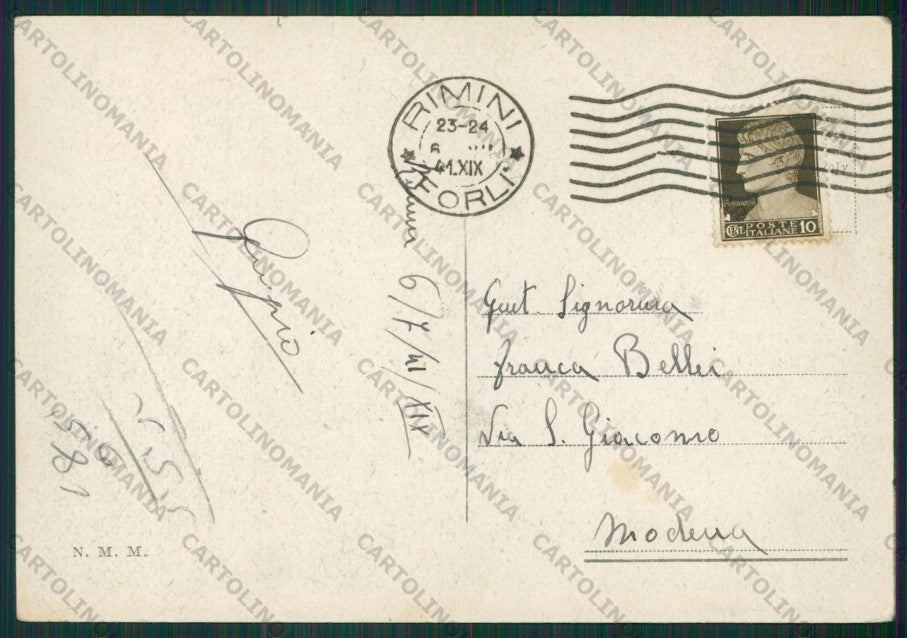 RIMINI
23-24
6 VII
41.XIX
(FORLI)
IMPERATOR
CENT. POSTE ITALIANE 10
6/7/41/XIX
Gent. Signorina
Franca Bellei
Via S. Giacomo
Modena
N. M. M.
CARTOLINOMANIA